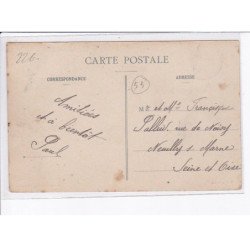 226
CARTE POSTALE
CORRESPONDANCE
ADRESSE
53
Amitiés
et à bientôt
Paul
Mr et Mme Françisque
Palluis rue de Noisy
Neuilly s Marne
Seine et Oise